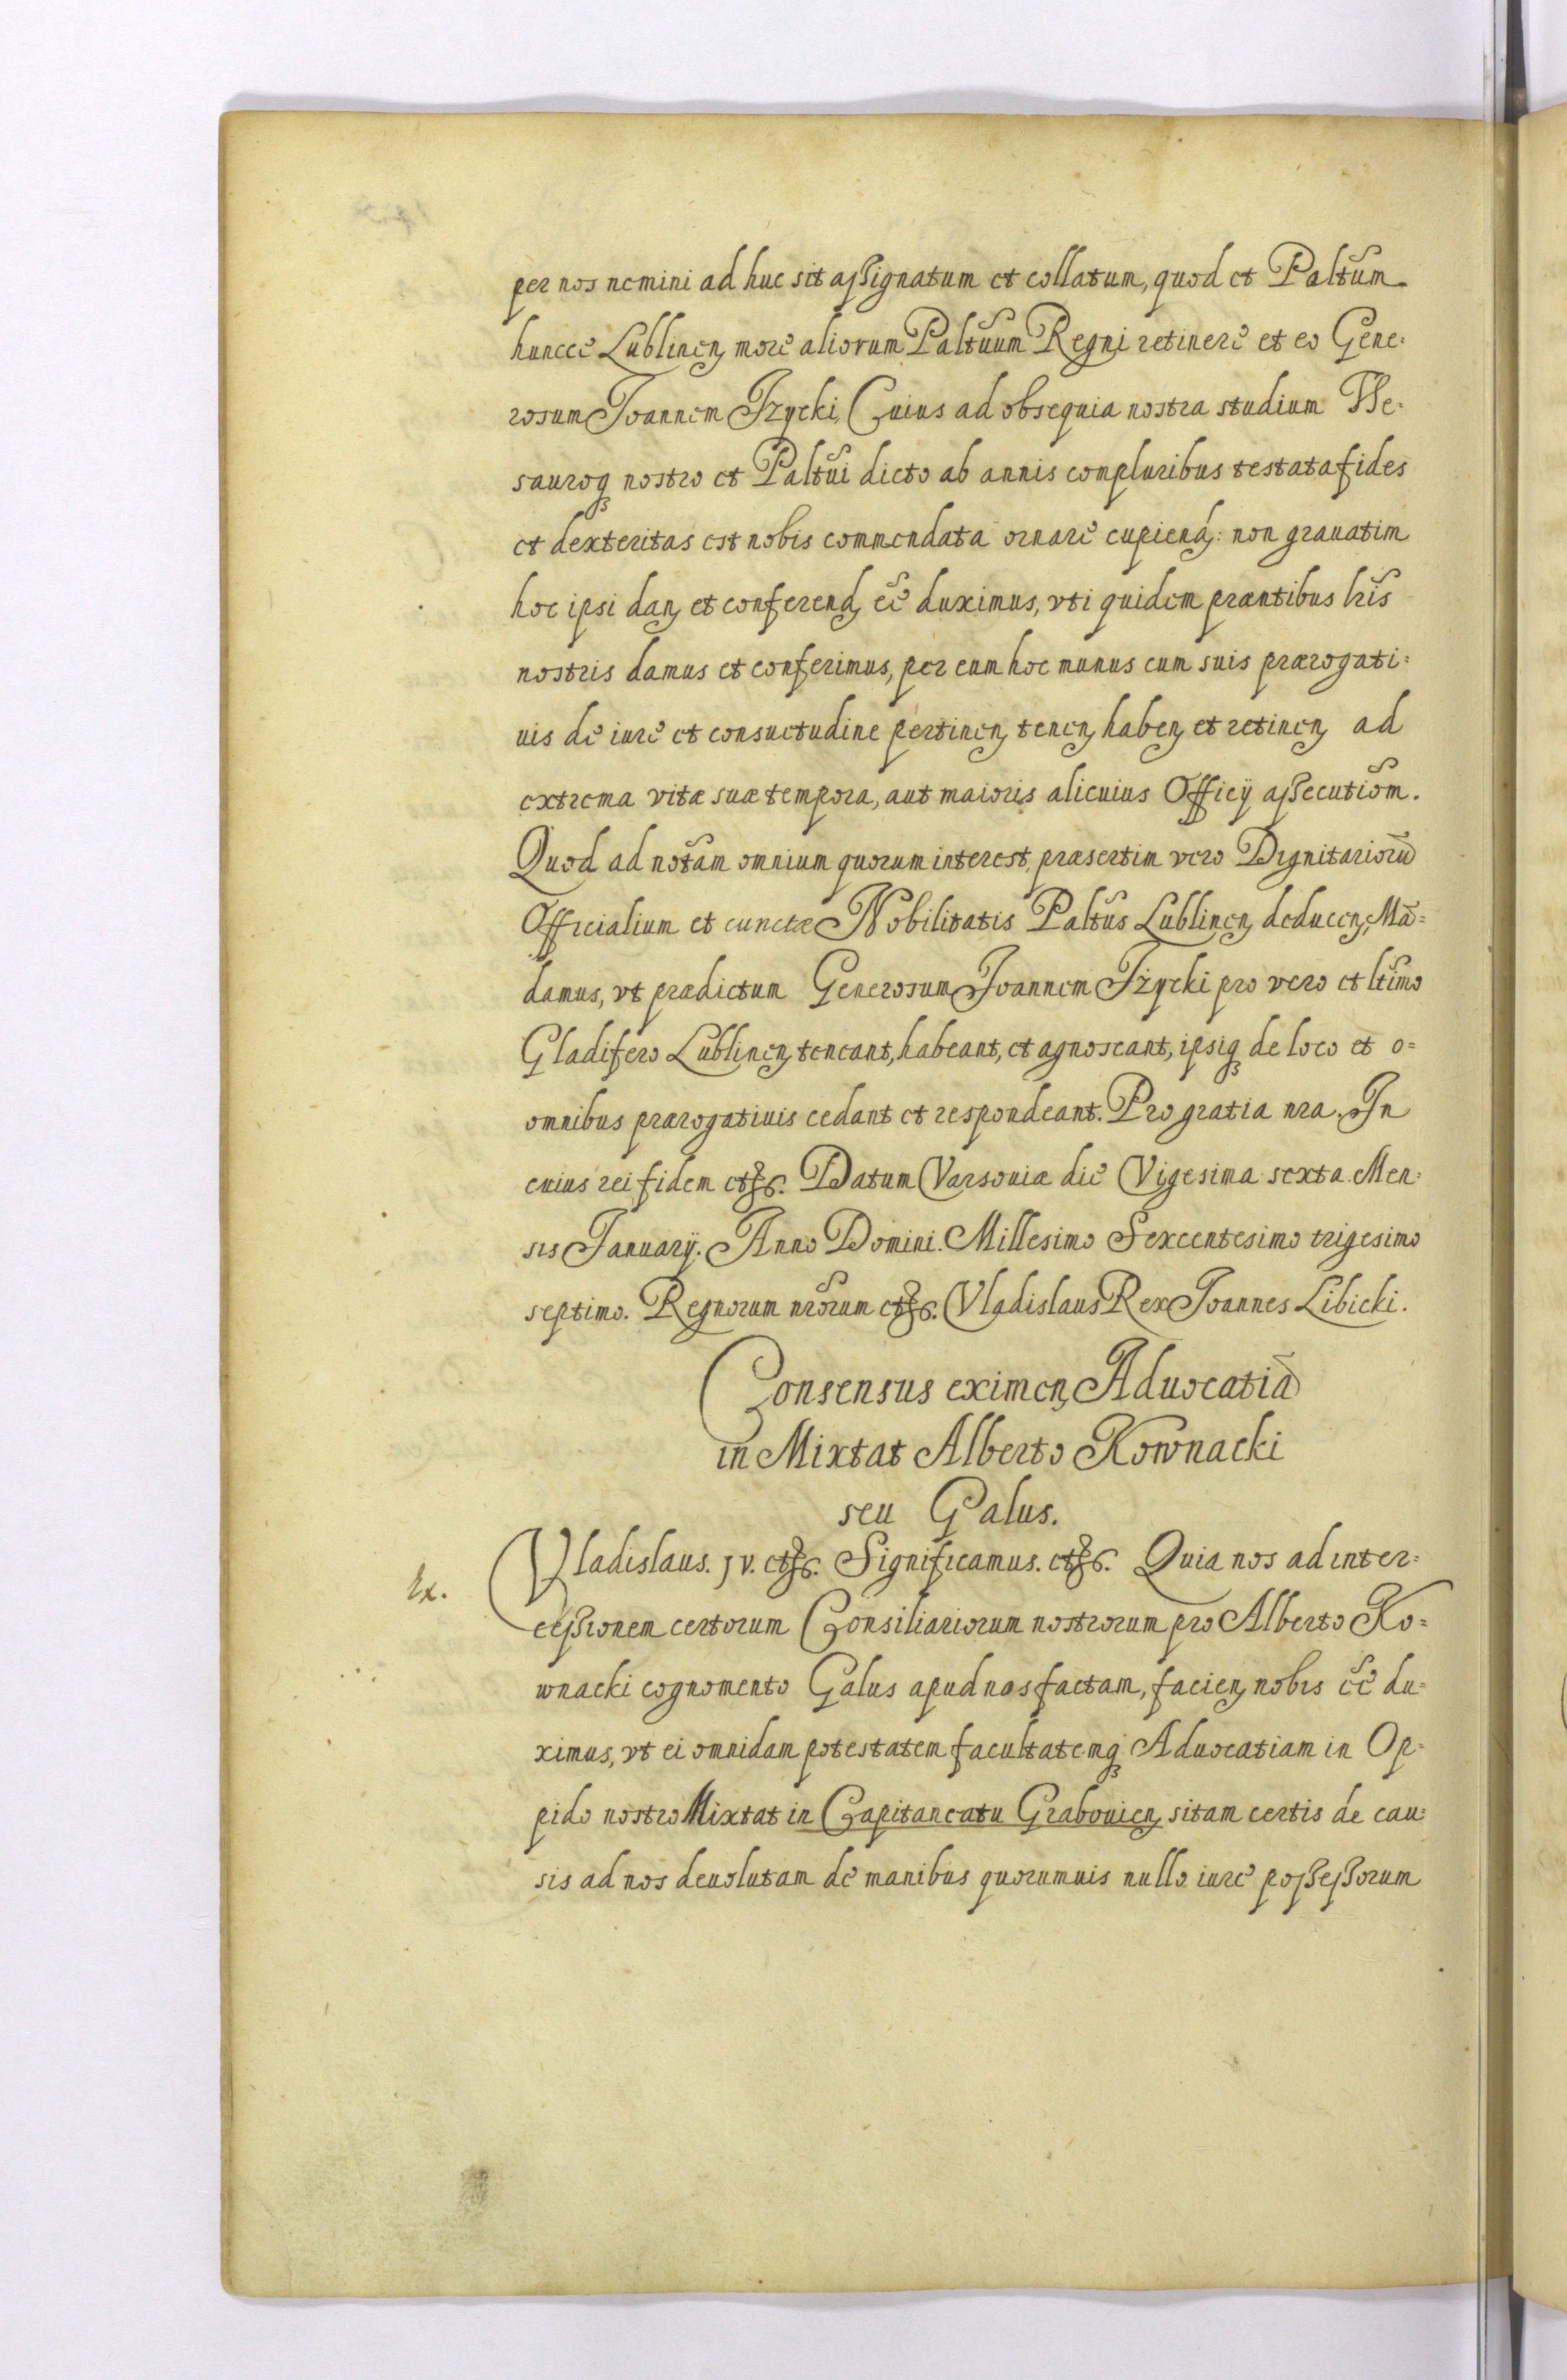 per nos nemini ad huc sit assignatum et collatum, quod et Paltum
huncce Lublinen more aliorum Paltuum Regni retinere et eo Gene:
rosum Joannem Jzycki, Cuius ad obsequia nostra studium The:
sauroq nostro et Paltui dicto ab annis compluribus testata fides
et dexteritas est nobis commendata ornare cupien: non grauatim
hoc ipsi dan et conferend ee duximus, vti quidem præntibus lris
nostris damus et conferimus, per eum hoc munus cum suis prærogati:
uis de iure et consuetudine pertinen tenen haben et retinen ad
extrema vitæ suæ tempora, aut maioris alicuius Officÿ assecutiom.
Quod ad notam omnium quorum interest, præsertim vero Dignitarioru
Officialium et cunctæ Nobilitatis Paltus Lublinen deducen, Mā=
damus, vt prædictum Generosum Joannem Jżycki pro vero et ltimo
Gladifero Lublinen teneant, habeant, et agnoscant, ipsiq de loco et o=
omnibus prærogatiuis cedant et respondeant. Pro gratia nra. In
cuius rei fidem etc. Datum Varsouiæ die Vigesima sexta Men:
sis Januarÿ. Anno Domini. Millesimo Sexcentesimo trigesimo
septimo. Regnorum nrorum etc. Vladislaus Rex Joannes Libicki.
Consensus eximen Aduocatiā
in Mixtat Alberto Kownacki
seu Galus.
Ex.
Vladislaus. JV. etc. Significamus. etc. Quia nos ad inter:
cessionem certorum Consiliariorum nostrorum pro Alberto Ko=
wnacki cognomento Galus apud nos factam, facien nobis ee du=
ximus, vt ei omnidam potestatem facultatemq Aduocatiam in Op=
pido nostro Mixtat in Capitaneatu Grabouien sitam certis de cau:
sis ad nos deuolutam de manibus quorumuis nullo iure possessorum